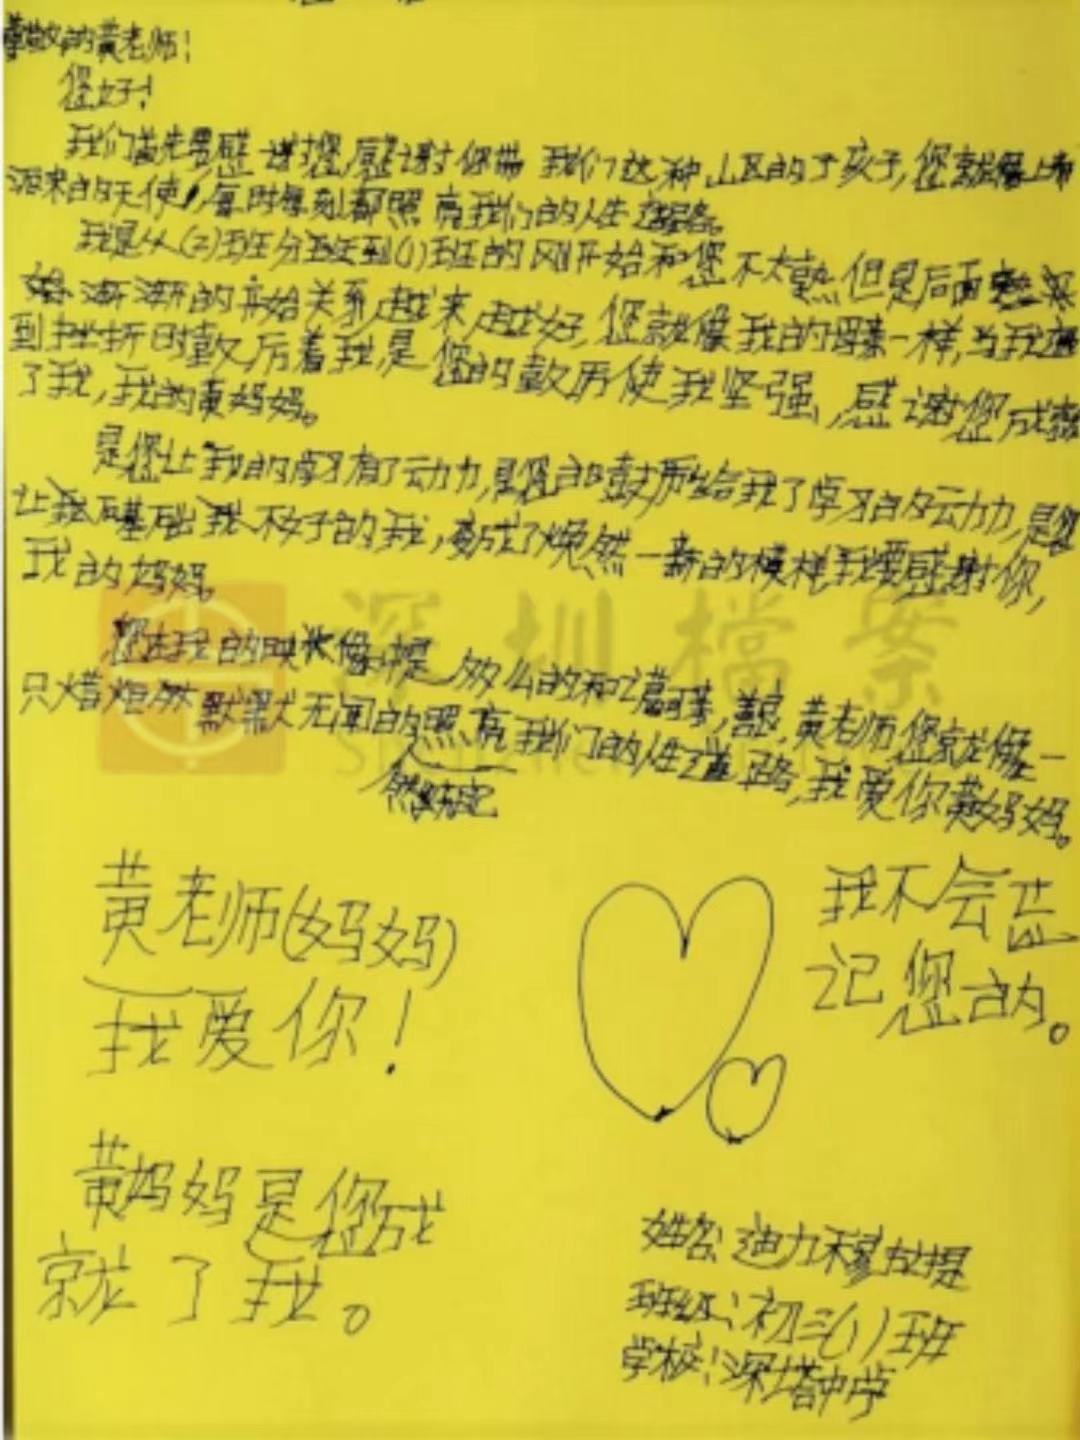 尊敬的黄老师!
您好!
我们首先要感谢您,感谢你带我们这种山区的孩子,您就像上帝
派来的天使,每时每刻都照亮我们的人生道路。
我是从(2)班分班到(1)班的刚开始和您不太熟但是后面
渐渐的开始关系越来越好,您就像我的母亲一样,当我遇
到挫折时鼓厉着我是您的鼓厉使我坚强,感谢您成就
了我,我的黄妈妈。
是您让我的学习有了动力,是您的鼓励给我了学习的动力,是您
让我基础不好的我,变成了焕然一新的模样我要感谢你,
我的妈妈。
您在我的映像中是多么的和蔼可亲,善良,黄老师您就像一
只火苗炬然默默无闻的照亮我们的人生道路,我爱你黄妈妈。
黄老师(妈妈)
我爱你!
我不会忘
记您的。
黄妈妈是您成
就了我。
姓名:迪力穆拉提
班级:初三(1)班
学校:深塔中学
深圳檔案